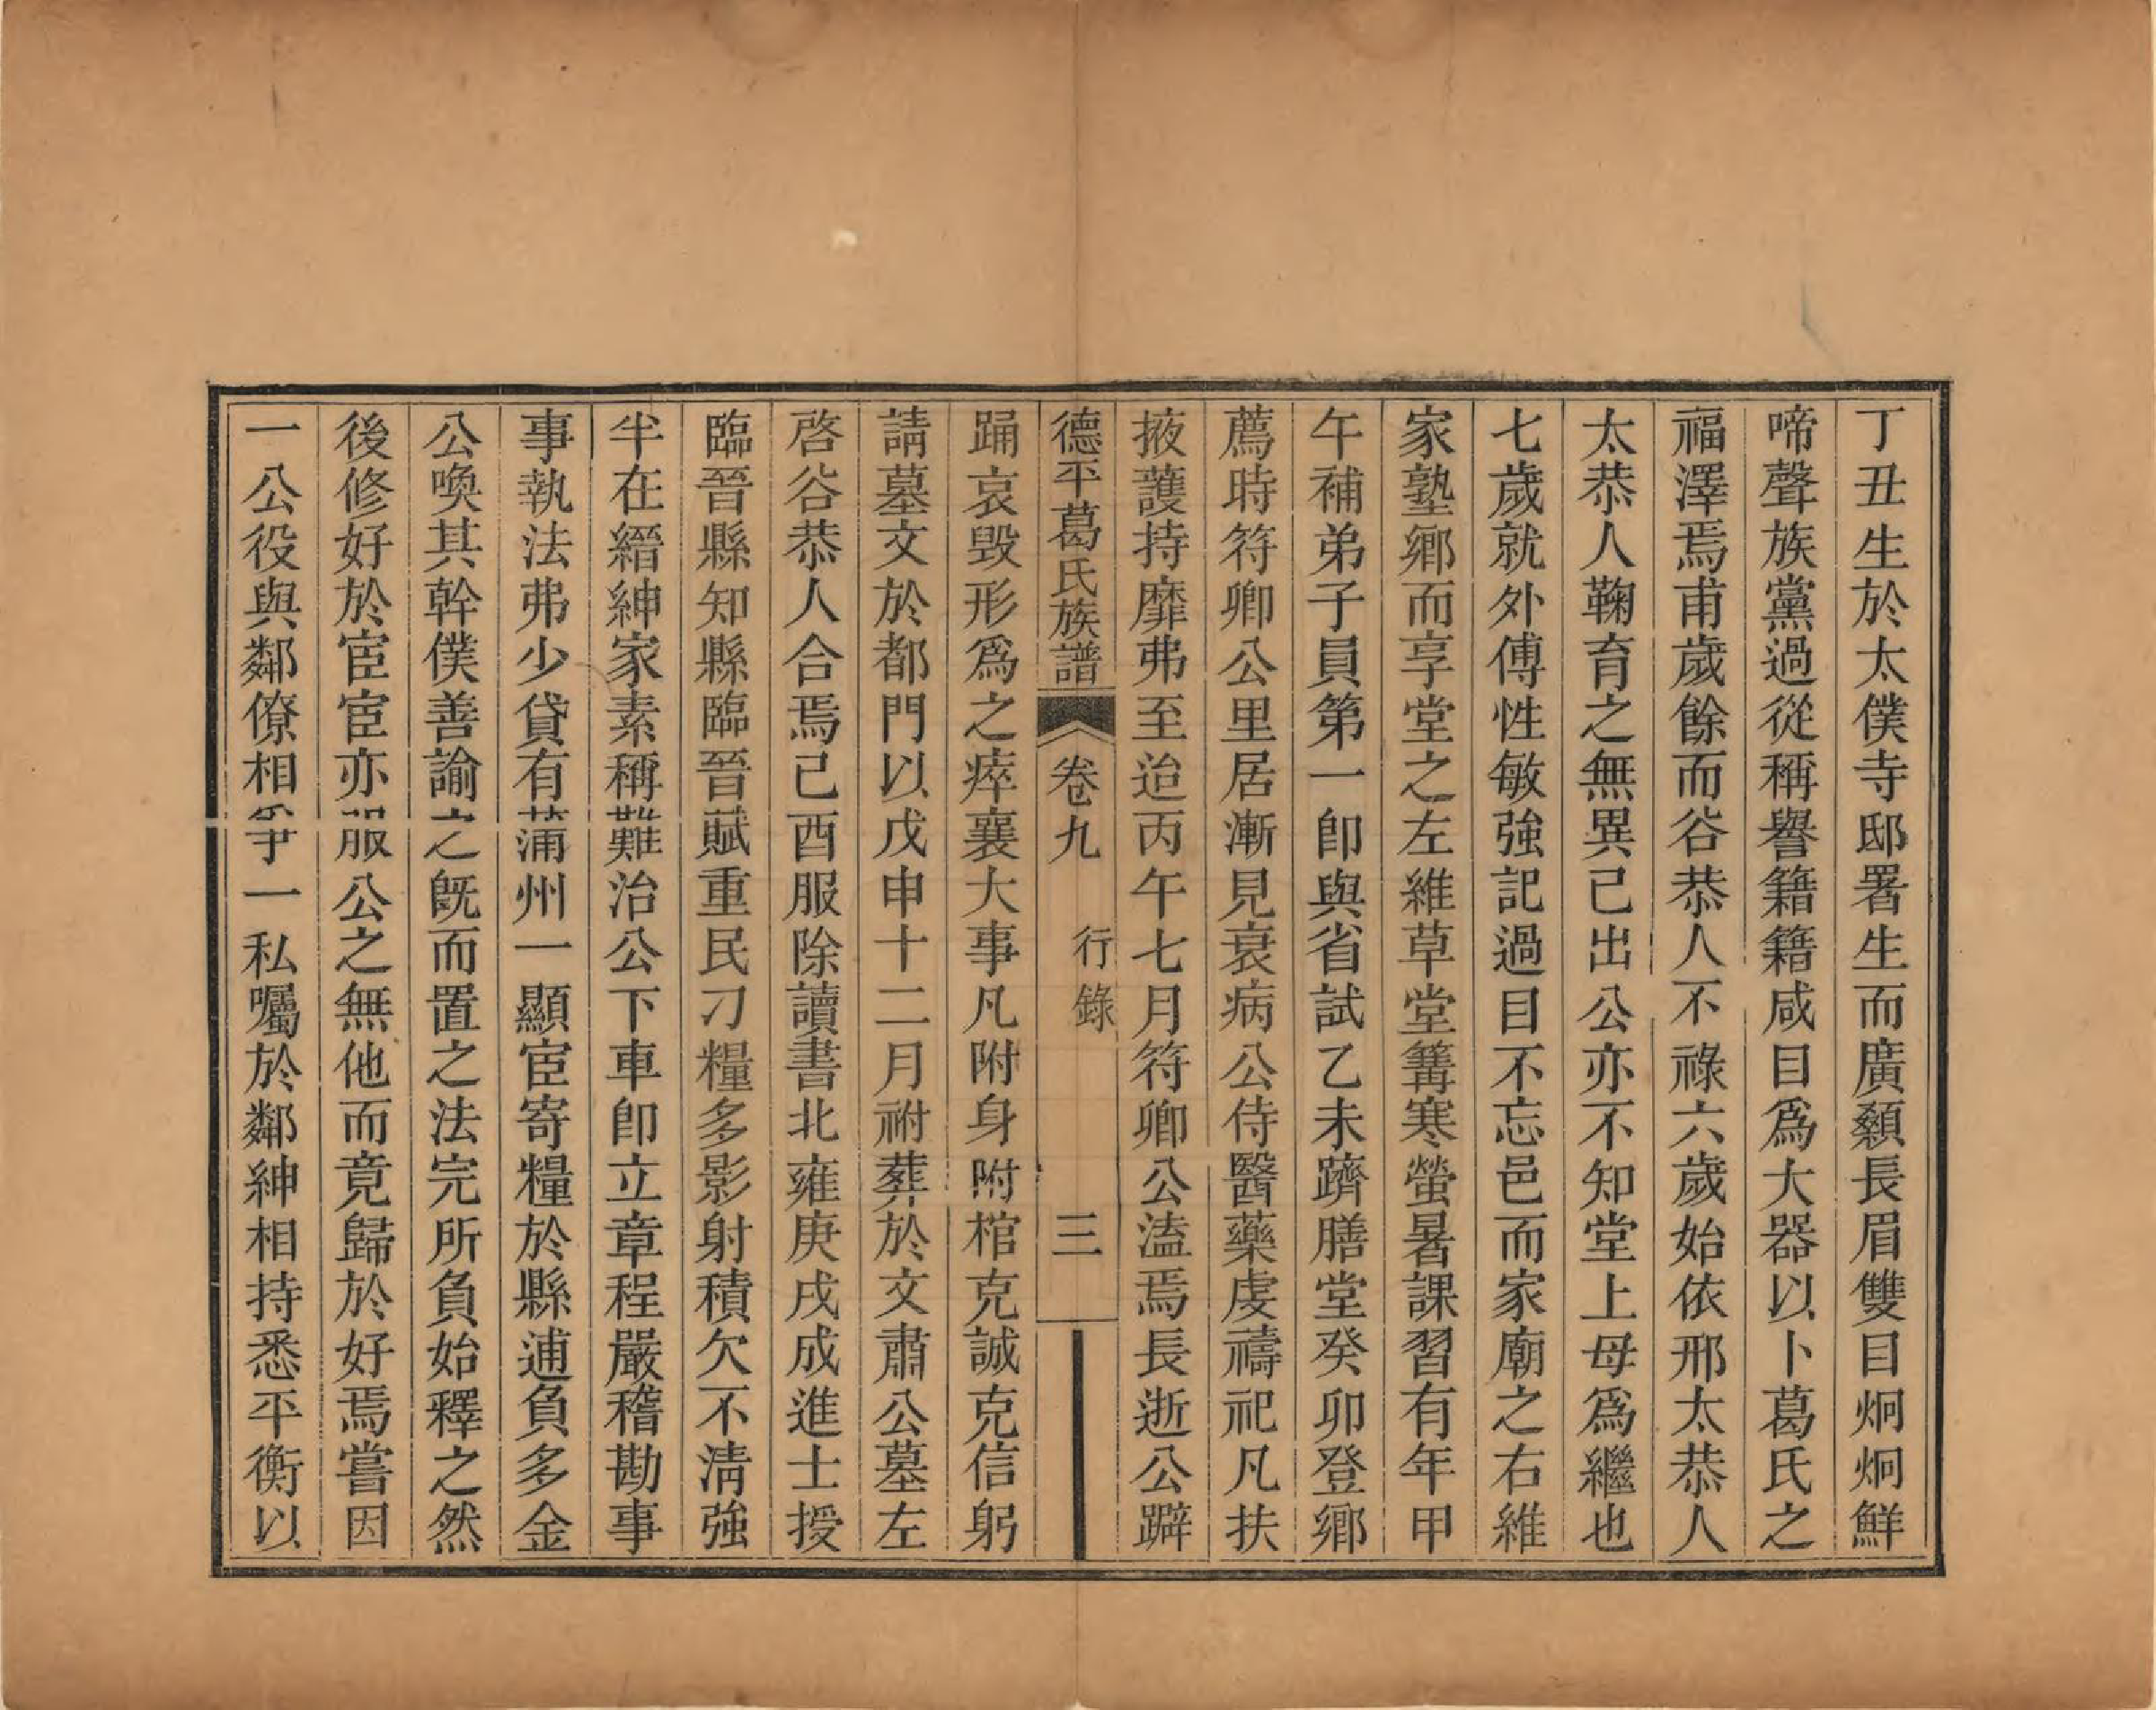 丁丑生於太僕寺邸署生而廣顙長眉雙目炯炯鮮
啼聲族黨過從稱譽籍籍咸目爲大器以卜葛氏之
福澤焉甫歲餘而谷恭人不祿六歲始依邢太恭人
太恭人鞠育之無異己出公亦不知堂上母爲繼也
七歲就外傅性敏強記過目不忘邑而家廟之右維
家塾鄉而享堂之左維草堂篝寒螢暑課習有年甲
午補弟子員第一卽與省試乙未躋膳堂癸卯登鄉
薦時符卿公里居漸見衰病公侍醫藥虔禱祀凡扶
掖護持靡弗至迨丙午七月符卿公溘焉長逝公躃
德平葛氏族譜 卷九 行錄 三
踊哀毀形爲之瘁襄大事凡附身附棺克誠克信躬
請墓文於都門以戊申十二月祔葬於文肅公墓左
啓谷恭人合焉己酉服除讀書北雍庚戌成進士授
臨晉縣知縣臨晉賦重民刁糧多影射積欠不淸強
半在縉紳家素稱難治公下車卽立章程嚴稽勘事
事執法弗少貸有蒲州一顯宦寄糧於縣逋負多金
公喚其幹僕善諭之旣而置之法完所負始釋之然
後修好於宦宦亦服公之無他而竟歸於好焉嘗因
一公役與鄰僚相爭一私囑於鄰紳相持悉平衡以